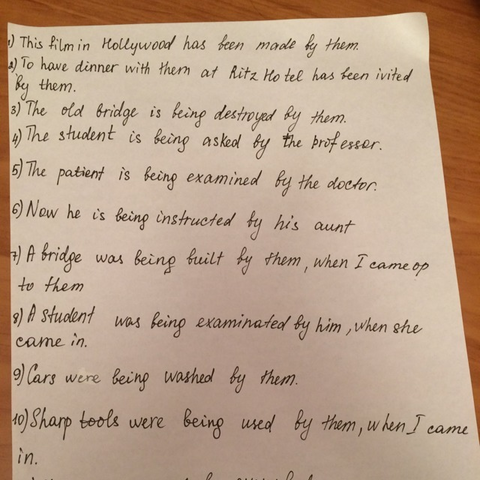 1) This film in Hollywood has been made by them.
2) To have dinner with them at Ritz Hotel has been ivited
by them.
3) The old bridge is being destroyed by them.
4) The student is being asked by the professor.
5) The patient is being examined by the doctor.
6) Now he is being instructed by his aunt
7) A bridge was being built by them, when I came op
to them
8) A student was being examinated by him, when she
came in.
9) Cars were being washed by them.
10) Sharp tools were being used by them, when I came
in.